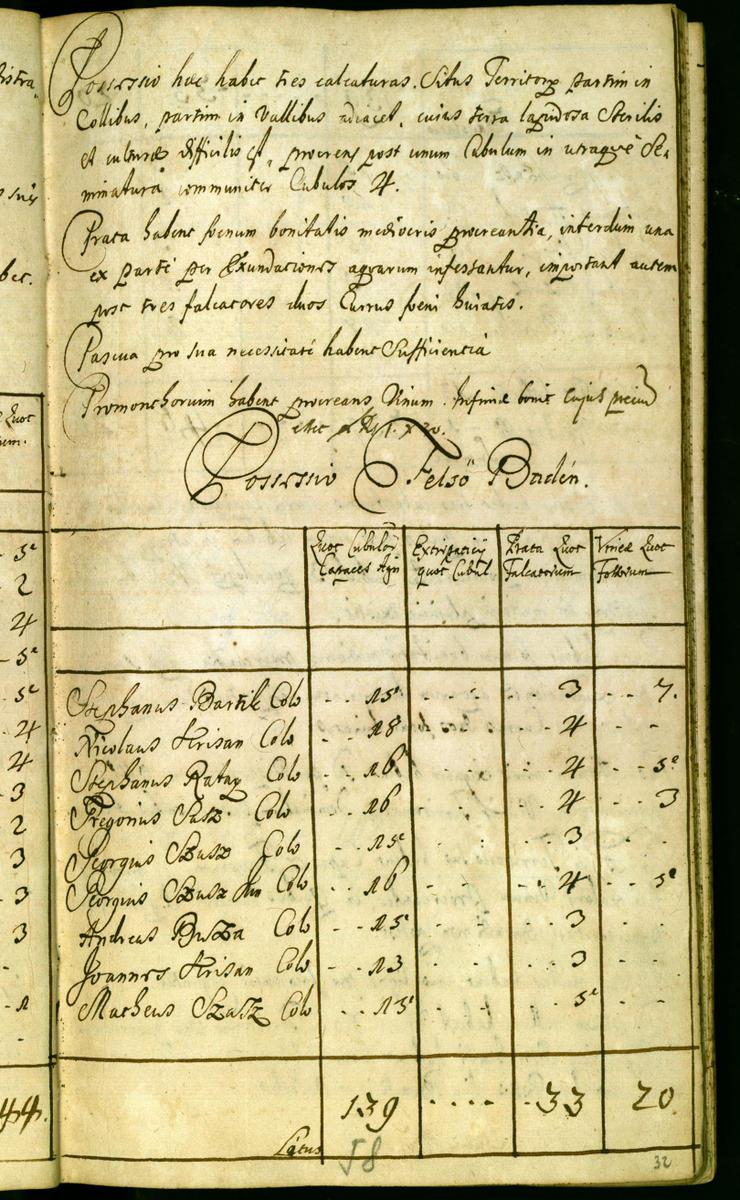 Possessio haec habet tres calcaturas. Situs Territory partim in
Collibus, partim in Vallibus adiacet, cuius terra lapidosa Sterilis
et culturae difficilis est, procrens post unum Cubulum in utraque Se-
minatura communiter Cubulos 4.
Prata habent foenum bonitatis mediocris procreantia, interdum una
ex parte per Exundationes aquarum infestantur, important autem
post tres falcatores duos Currus foeni huiatis.
Pascua pro sua necessitate habent Sufficientia
Promonthorium habent procreans Vinum. Infimae bonit cujus precium
Possessio Felsö Badén.
Quot Cubulor Capaces Agri
Extirpatity quot Cubul
Prata Quot Falcatorium
Vineae Quot Fossorum
Stephanus Bartik Colo - - 15 - - - - 3 - - 7.
Nicolaus Krisan Colo - - 18 - - 4 - -
Stephanus Ratay Colo - - 16 - - 4 - - 5
Gregorius Sasz Colo 16 - - 4 - - 3
Georgius Szusz Colo - - 15 - - 3 - -
Georgius Szusz Jun Colo - - 16 - - 4 - - 5
Andreas Buszza Colo - - 15 - - 3 - -
Joannes Krisan Colo - - 13 - - 3 - -
Matheus Szasz Colo - - 15 - - 5 - -
139 - - - - 33 20.
Latus
58
32
5
2
4
5
5
4
4
3
2
3
3
3
1
44.